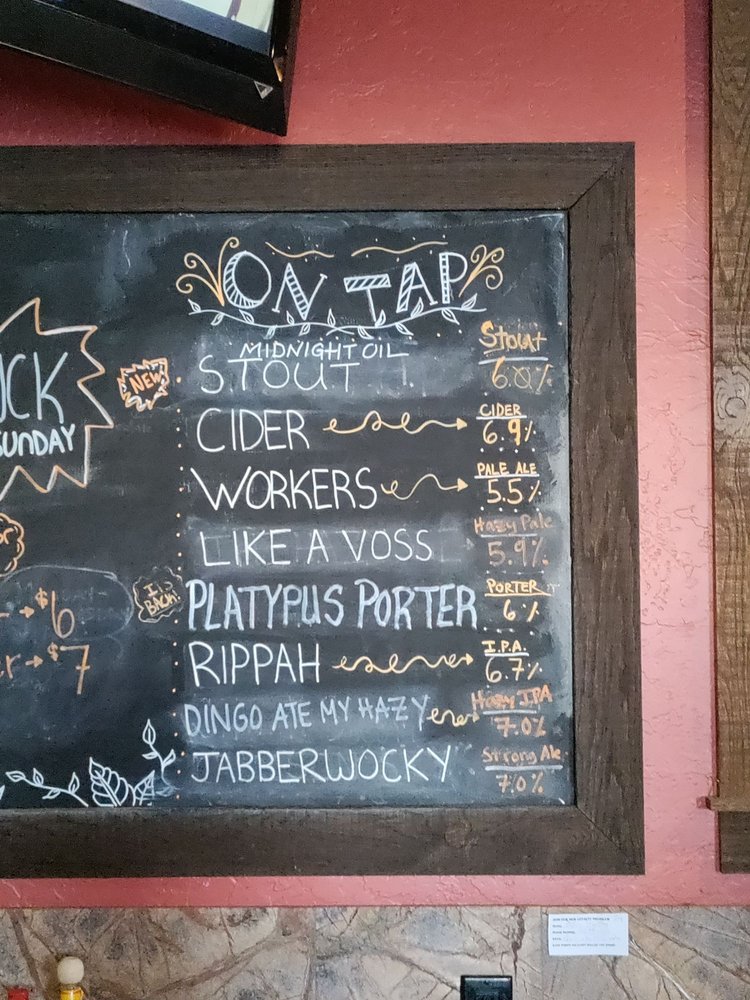 ON TAP
NEW
MIDNIGHT OIL
STOUT
Stout
6.0%
CIDER
CIDER
6.9%
WORKERS
PALE ALE
5.5%
LIKE A VOSS
Hazy Pale
5.9%
PLATYPUS PORTER
PORTER
6%
RIPPAH
I.P.A.
6.7%
DINGO ATE MY HAZY
Hazy IPA
7.0%
JABBERWOCKY
Strong Ale
7.0%
SUNDAY
$6
$7
BACK!